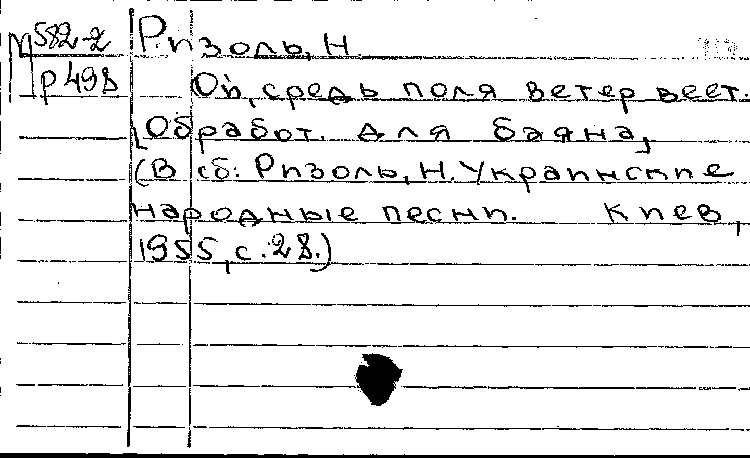 М582-2 Ризоль, Н.
Р498 Ой, средь поля ветер веет.
[Обработ. для баяна,
(В сб: Ризоль, Н. Украинские
народные песни. Киев,
1955, с. 28.)